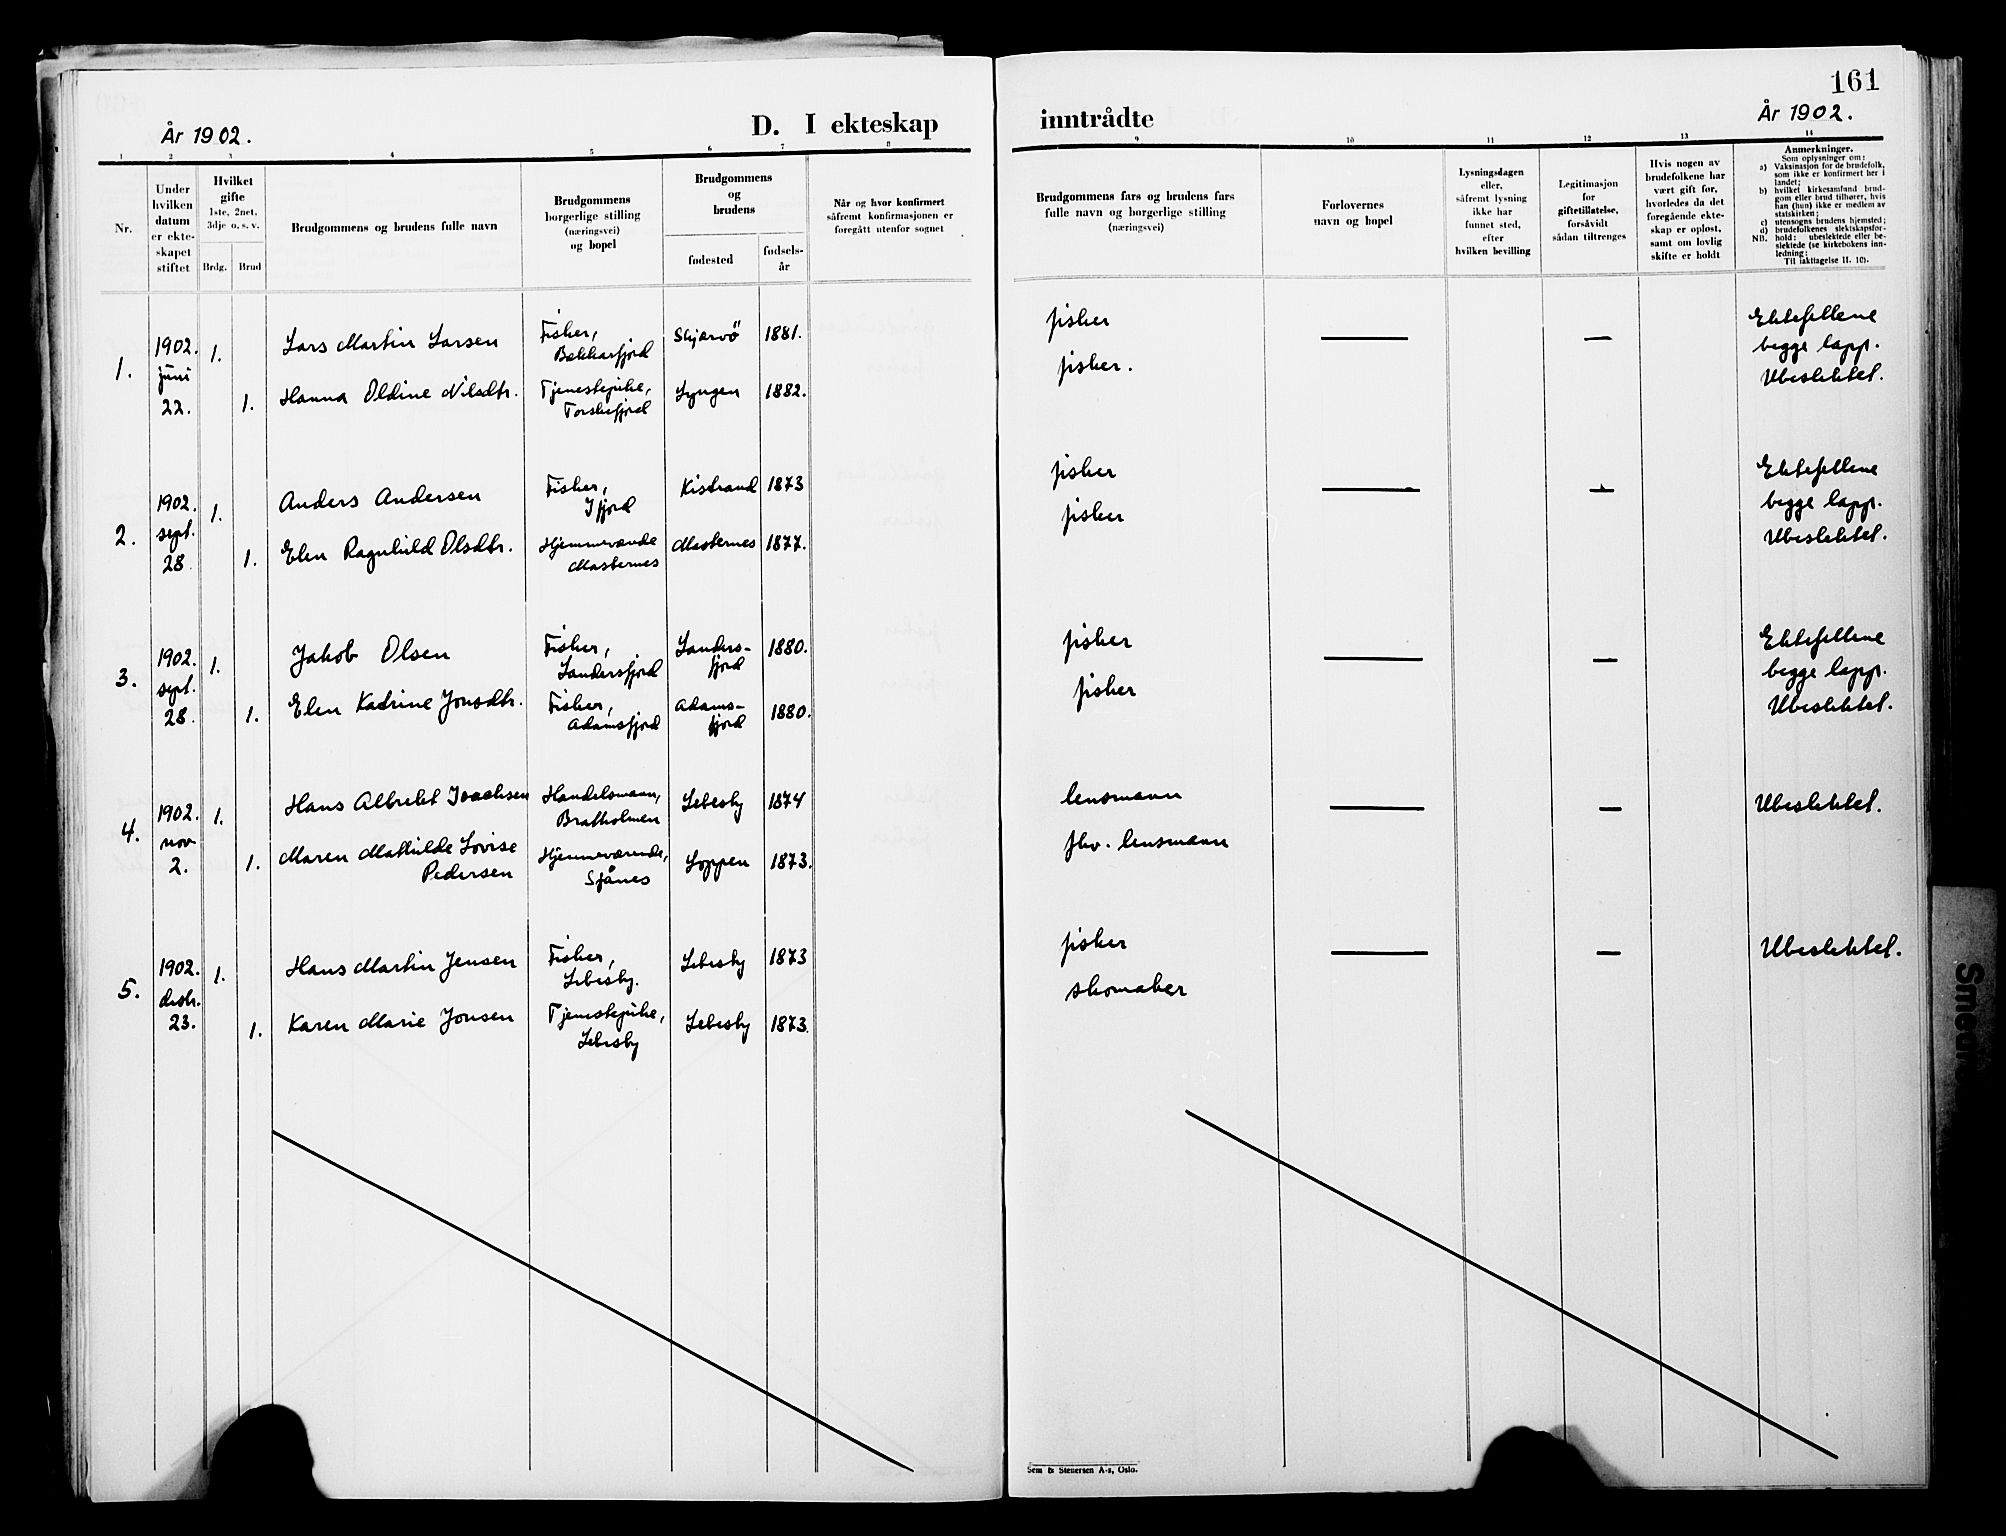 År 1902.
D. I ekteskap
1 2 3 4 5 6 7 8
Nr.
Under
hvilken
datum
er ekte-
skapet
stiftet
Hvilket
gifte
1ste, 2net,
3dje o. s. v.
Brdg. Brud
Brudgommens og brudens fulle navn
Brudgommens
borgerlige stilling
(næringsvei)
og bopel
Brudgommens
og
brudens
fødested
fødsels-
år
Når og hvor konfirmert
såfremt konfirmasjonen er
foregått utenfor sognet
1.
1902.
juni
22.
1.
Lars Martin Larsen
Fisker,
Bekkarfjord
Skjærvö
1881.
1.
Hanna Oldine Nilsdtr.
Tjenestepike,
Torskefjord
Lyngen
1882.
2.
1902.
sept.
28.
1.
Anders Andersen
Fisker,
Ifjord
Kistrand
1873
1.
Elen Ragnhild Olsdtr.
Hjemmeværende
Masternes
Masternes
1877.
3.
1902.
sept.
28.
1.
Jakob Olsen
Fisker,
Landersfjord
Landers-
fjord
1880.
1.
Elen Katrine Jonsdtr.
Fisker,
Adamsfjord
Adams-
fjord
1880.
4.
1902.
nov
2.
1.
Hans Albrekt Isachsen
Handelsmann,
Bratholmen
Lebesby
1874
1.
Maren Mathilde Lovise
Pedersen
Hjemmeværende,
Sjånes
Loppen
1873.
5.
1902.
desbr.
23.
1.
Hans Martin Jensen
Fisker,
Lebesby.
Lebesby
1873
1.
Karen Marie Jonsen
Tjenestepike,
Lebesby
Lebesby
1873.
161
År 1902.
inntrådte
9 10 11 12 13 14
Brudgommens fars og brudens fars
fulle navn og borgerlige stilling
(næringsvei)
Forlovernes
navn og bopel
Lysningsdagen
eller,
såfremt lysning
ikke har
funnet sted,
efter
hvilken bevilling
Legitimasjon
for
giftetillatelse,
forsåvidt
sådan tiltrenges
Hvis nogen av
brudefolkene har
vært gift før,
hvorledes da det
foregående ekte-
skap er opløst,
samt om lovlig
skifte er holdt
Anmerkninger.
Som oplysninger om:
a) Vaksinasjon for de brudefolk,
som ikke er konfirmert her i
landet;
b) hvilket kirkesamfund brud-
gom eller brud tilhører, hvis
han (hun) ikke er medlem av
statskirken;
c) utensogns brudens hjemsted;
d) brudefolkenes slektskapsfor-
hold: ubeslektede eller be-
slektede (se kirkebokens inn-
ledning:
NB. Til iakttagelse II. 10).
fisker
fisker.
Ektefellene
begge lapp.
Ubeslektet.
fisker
fisker
Ektefellene
begge lapp.
Ubeslektet.
fisker
fisker
Ektefellene
begge lapp.
Ubeslektet.
lensmann
fhv. lensmann
Ubeslektet.
fisker
skomaker
Ubeslektet.
Sem & Stenersen A-s, Oslo.